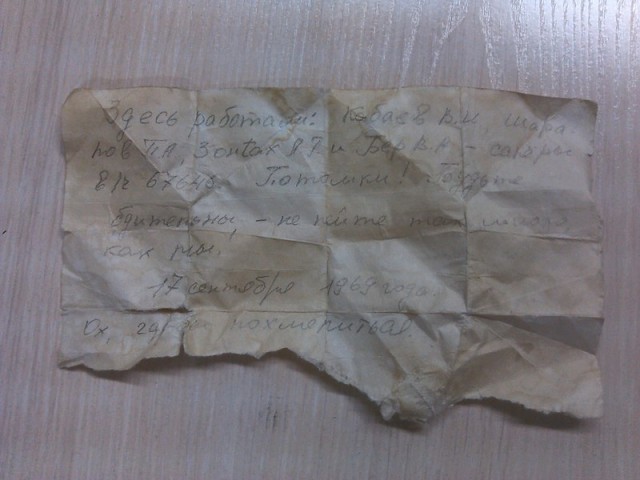 Здесь работали: Кабаев В.И, Шара-
пов П.А, Зонтах Я.Т и Бер В.А - сапёры
в/ч 67648. Потомки! Будьте
бдительны, - не пейте так много
как мы.
17 сентября 1969 года.
Ох, где бы похмелиться!